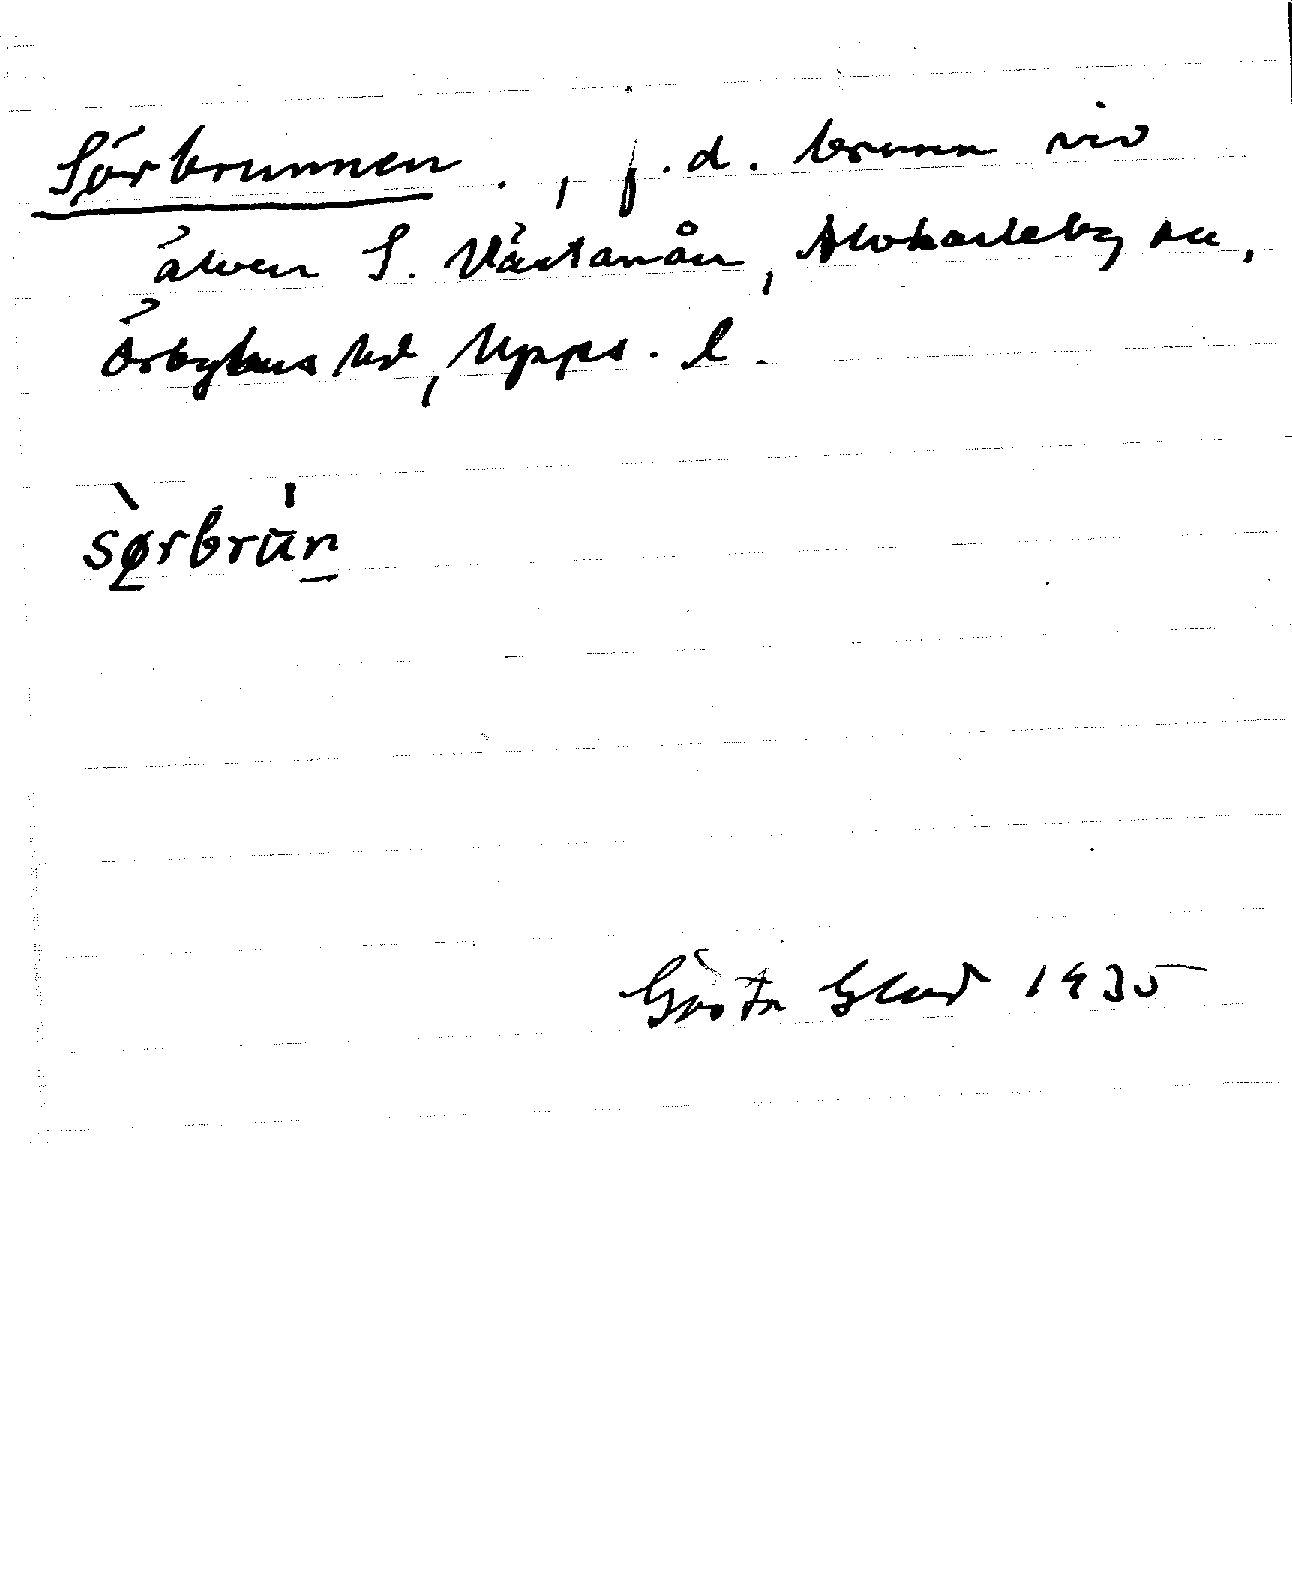 Sörbrunnen . , f. d. brunn vid
älven S. Västanån, Älvkarleby sn,
Örbyhus hd, Upps. l.
sørbrun
Gösta 1935